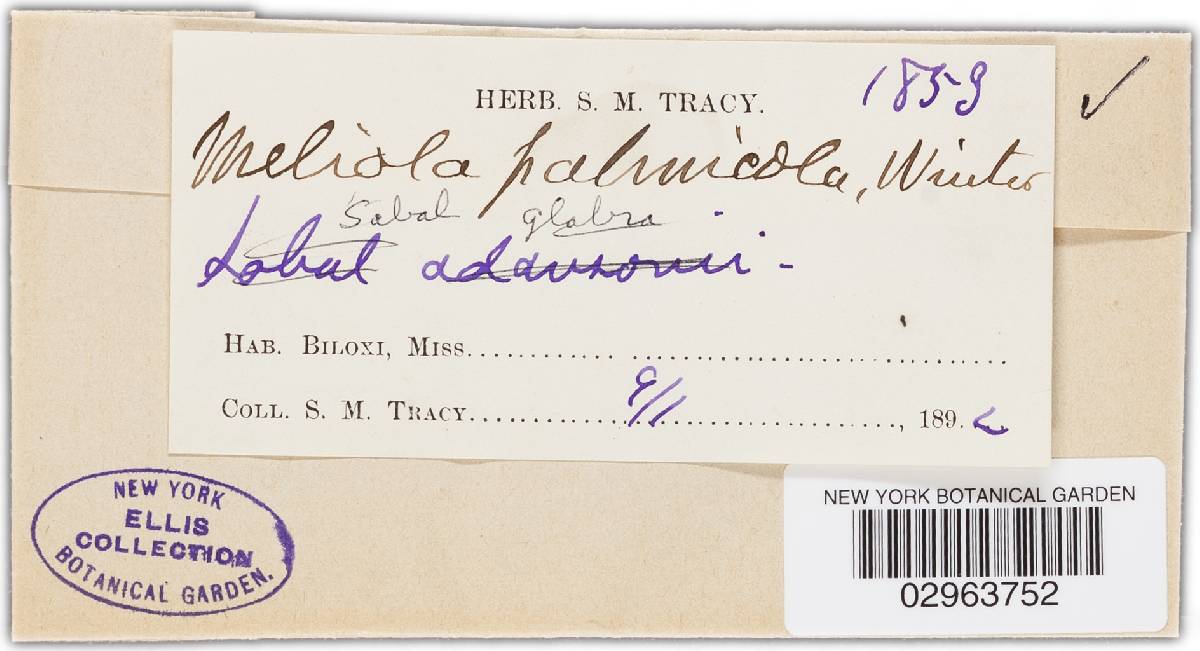 HERB. S. M. TRACY. 1859
Meliola palmicola, Winter
Sabal glabra
Sabal adansonii -
HAB. BILOXI, MISS.
COLL. S. M. TRACY. 9/1, 1892
NEW YORK
ELLIS
COLLECTION
BOTANICAL GARDEN.
NEW YORK BOTANICAL GARDEN
02963752